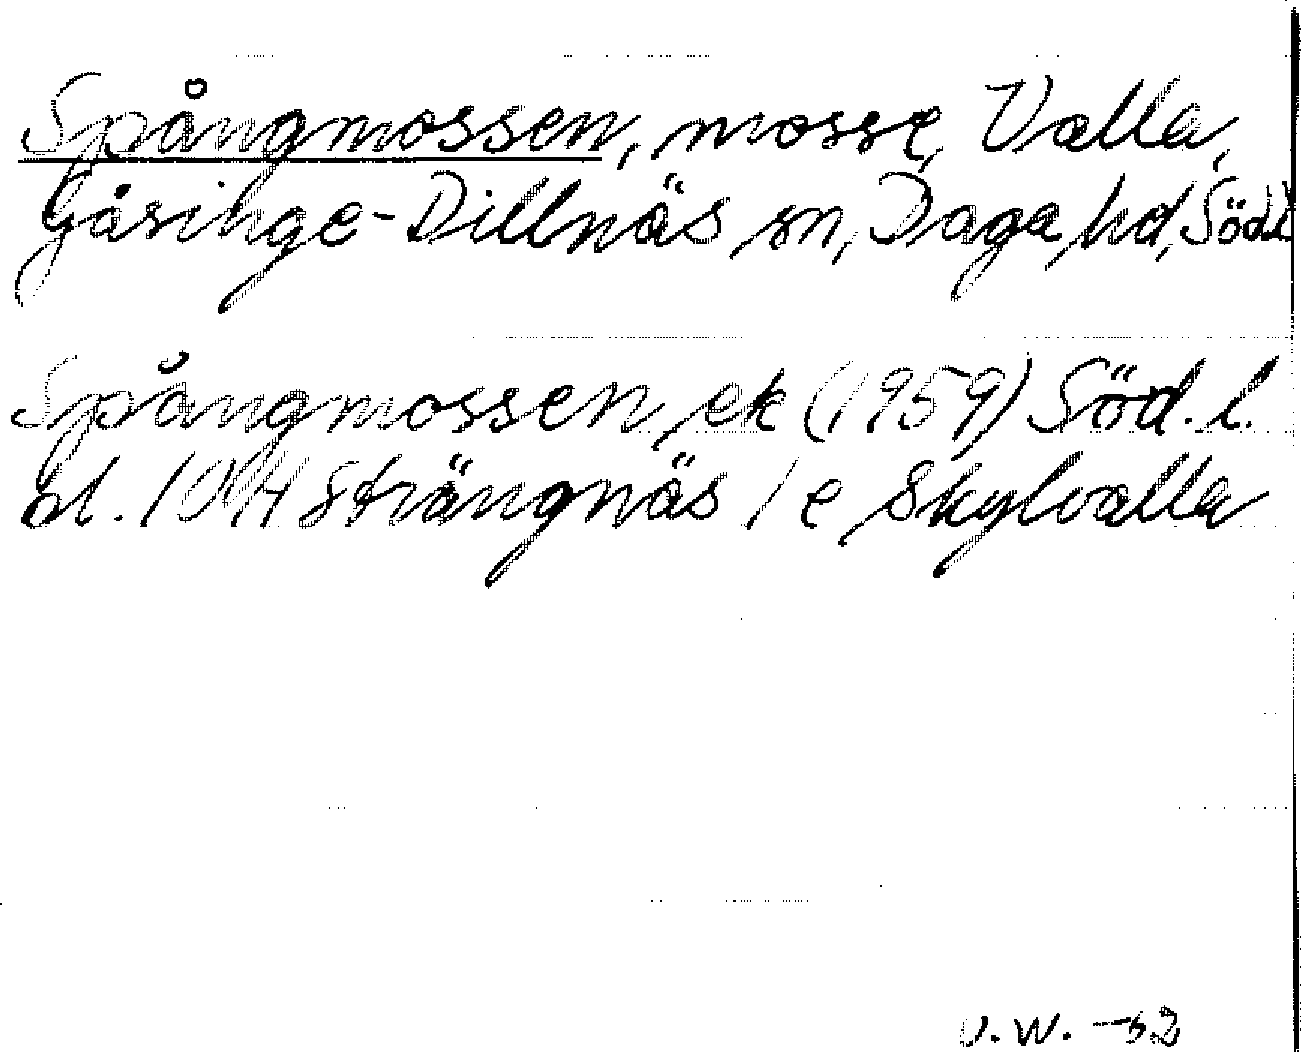 Spångmossen, mosse, Valla,
Gåsinge-Dillnäs sn, Daga hd, Södl
Spångmossen, ek (1959) Söd. l.
bl. 104 Strängnäs / e Skylvalla